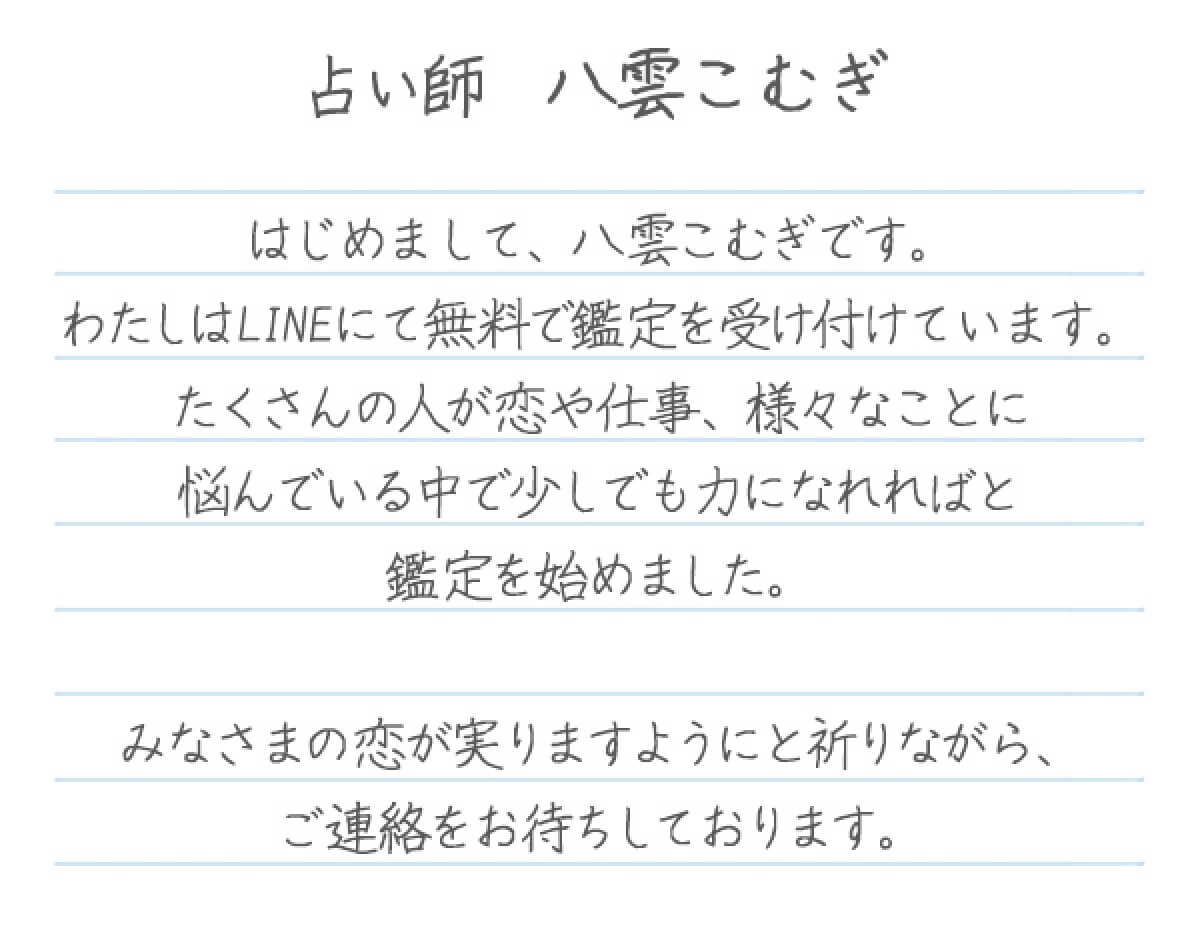 占い師 八雲こむぎ
はじめまして、八雲こむぎです。
わたしはLINEにて無料で鑑定を受け付けています。
たくさんの人が恋や仕事、様々なことに
悩んでいる中で少しでも力になれればと
鑑定を始めました。
みなさまの恋が実りますようにと祈りながら、
ご連絡をお待ちしております。